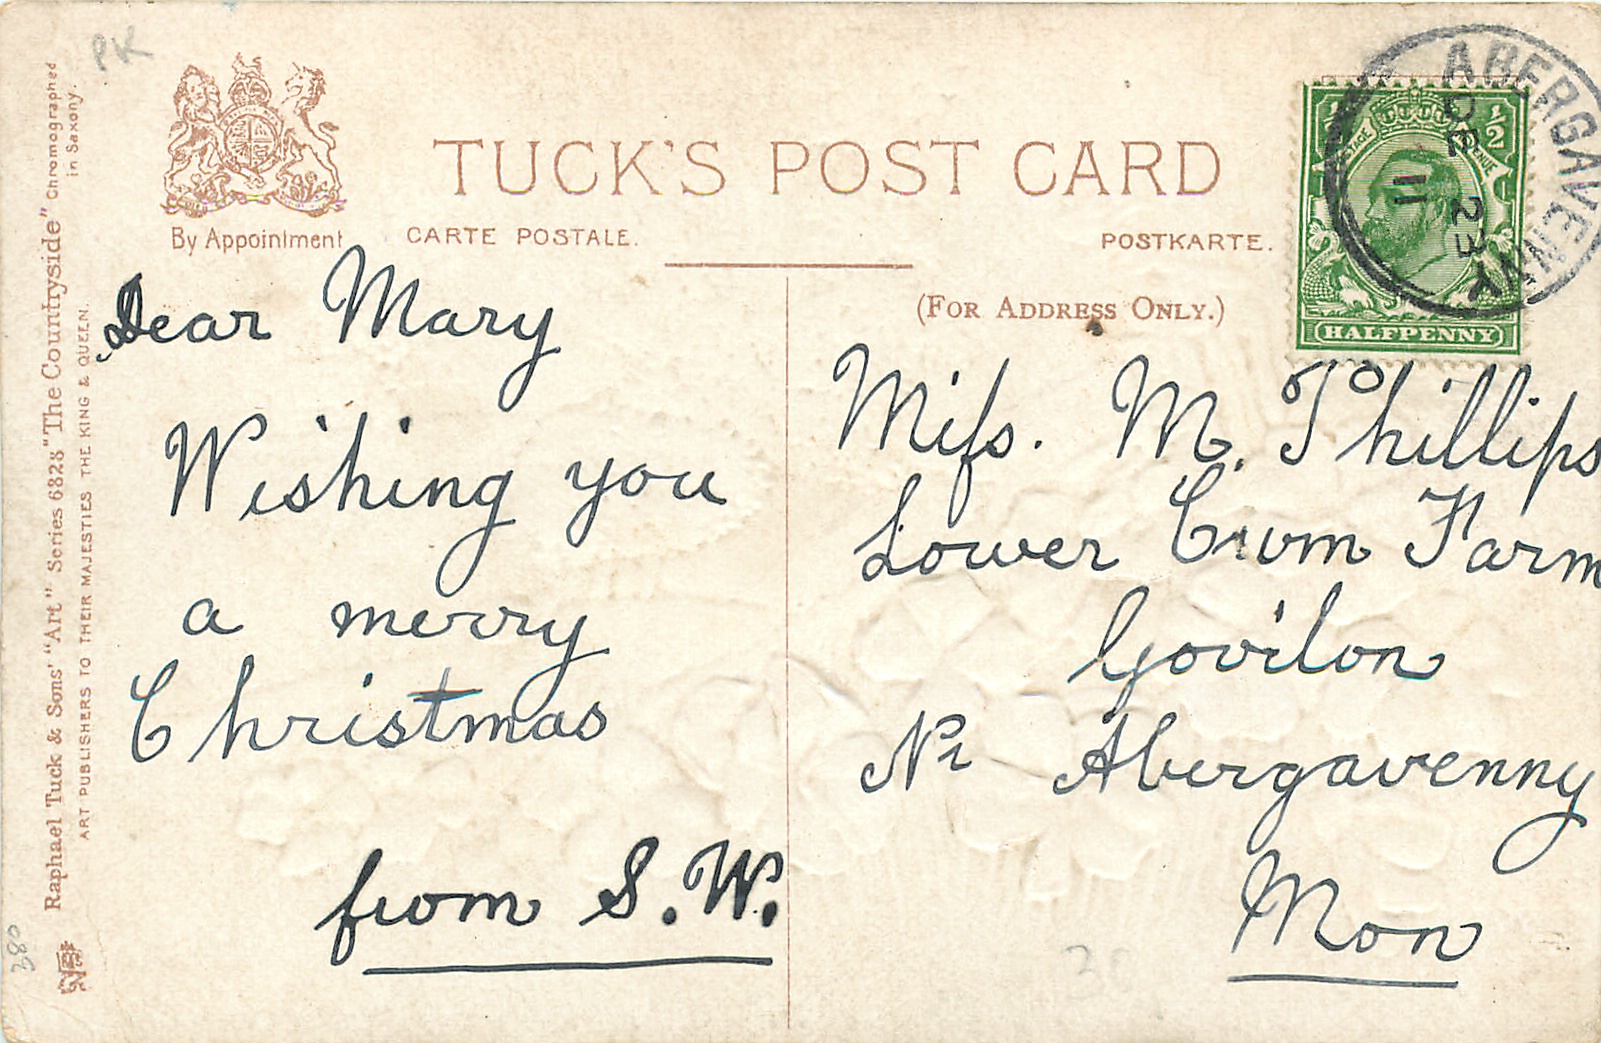 PK
TUCK'S POST CARD
By Appointment
CARTE POSTALE.
POSTKARTE.
(FOR ADDRESS ONLY.)
ABERGAVENNY
DE 23
11
1/2
1/2
POSTAGE
REVENUE
HALFPENNY
Dear Mary
Wishing you
a merry
Christmas
from S.W.
Miss. M. Phillips
Lower Cwm Farm
Govilon
Nr Abergavenny
Mon
Raphael Tuck & Sons' "Art" Series 6828 "The Countryside" Chromographed
in Saxony.
ART PUBLISHERS TO THEIR MAJESTIES THE KING & QUEEN.
380
30